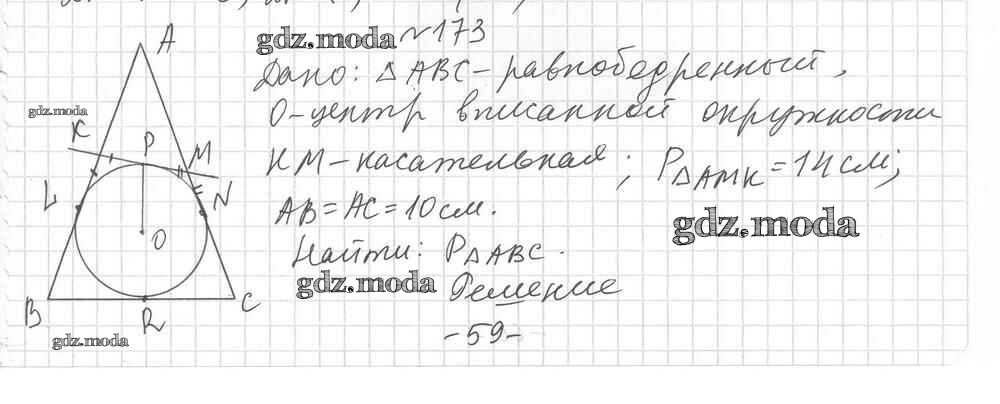 gdz.moda №173
Дано: △ABC - равнобедренный,
O - центр вписанной окружности
KM - касательная; P△AMK = 14 см;
AB = AC = 10 см.
gdz.moda
Найти: P△ABC.
gdz.moda Решение
-59-
A
gdz.moda
K P M
L N
O
B R C
gdz.moda